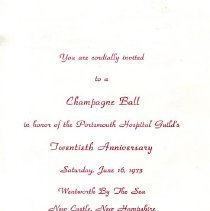 You are cordially invited
to a
Champagne Ball
in honor of the Portsmouth Hospital Guild's
Twentieth Anniversary
Saturday, June 16, 1973
Wentworth By The Sea
New Castle, New Hampshire